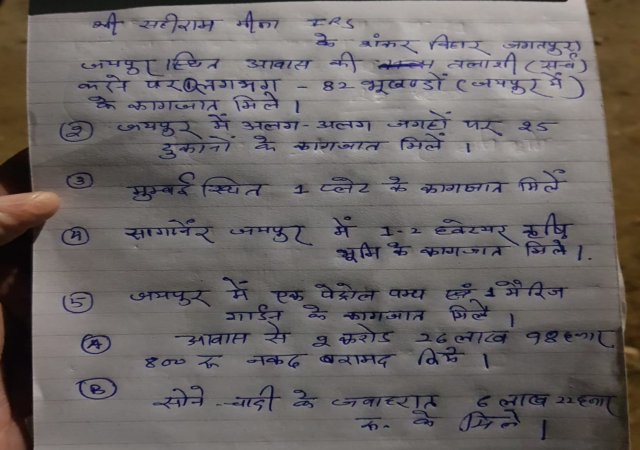 श्री सहीराम मीना IRS
के शंकर विहार जगतपुरा
जयपुर स्थित आवास की तलाशी (सर्च)
करने पर ① लगभग - 82 भूखण्डों (जयपुर में)
के कागजात मिले ।
② जयपुर में अलग-अलग जगहों पर 25
दुकानों के कागजात मिलें ।
③ मुम्बई स्थित 1 प्लेट के कागजात मिलें
④ सागानेर जयपुर में 1-2 हक्टेयर कृषि
भूमि के कागजात मिले ।
⑤ जयपुर में एक पेट्रोल पम्प एवं 1 मैरिज
गार्डन के कागजात मिलें ।
Ⓐ आवास से 2 करोड 26 लाख 98 हजार
800 रू नकद बरामद किये ।
Ⓑ सोने-चादी के जवाहरात 6 लाख 22 हजार
रू. के मिले ।